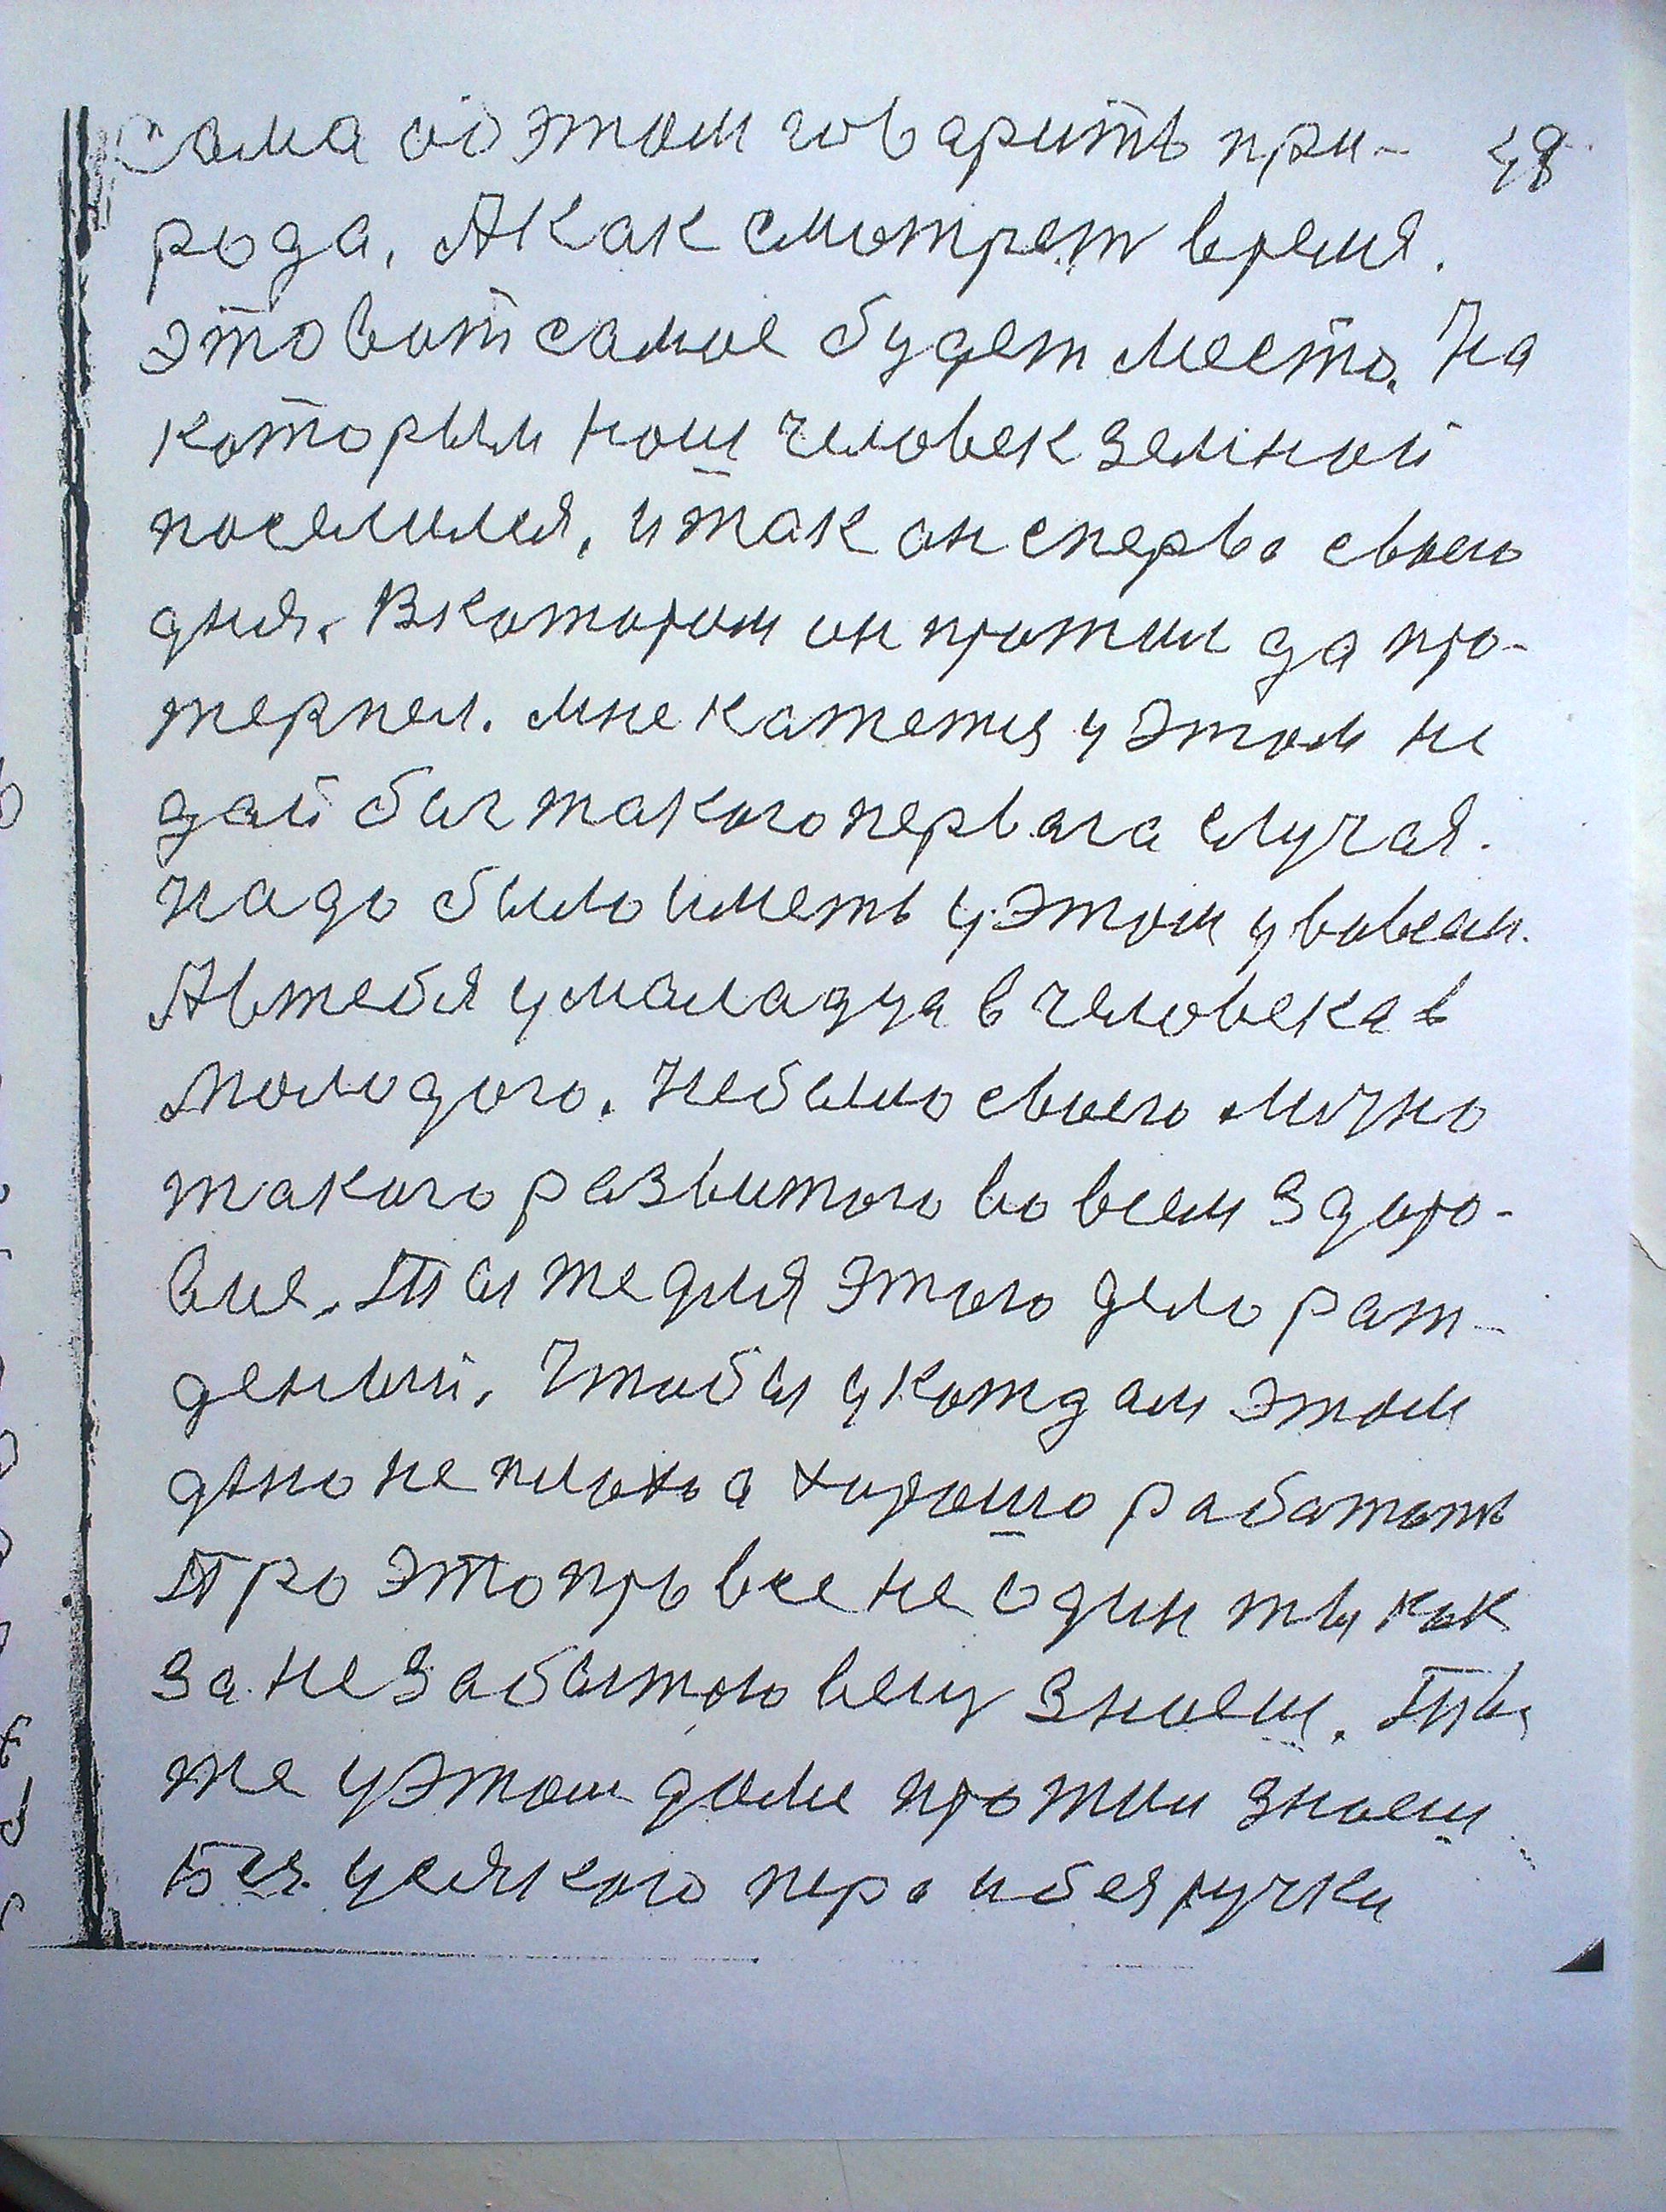 сама об этом говарить при- 48
рода, А как смотрет время.
это вот самое будет место. На
которым наш человек земной
поселился, и так он сперва своего
дня. В котором он протил да про-
терпел. мне катется у этом не
дай бог такого первага случая.
надо было иметь у этом увовсем.
А в тебя у маладца в человека в
молодого. не было своего лично
такого развитого во всем здоро-
вие. Ты те для этого дело рат-
деный, Чтобы у котдам этом
дно не плохо а хорошо работать
Про это про все не один ты как
за не забытою вещ знаеш. Ты
те у этом доме протил знаеш
Без усякого пера и без ручки